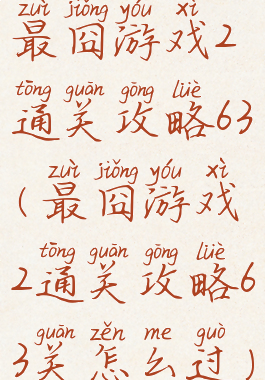 zuì jiǒng yóu xì
最囧游戏2
tōng guān gōng lüè
通关攻略63
zuì jiǒng yóu xì
(最囧游戏
tōng guān gōng lüè
2通关攻略6
guān zěn me guò
3关怎么过)